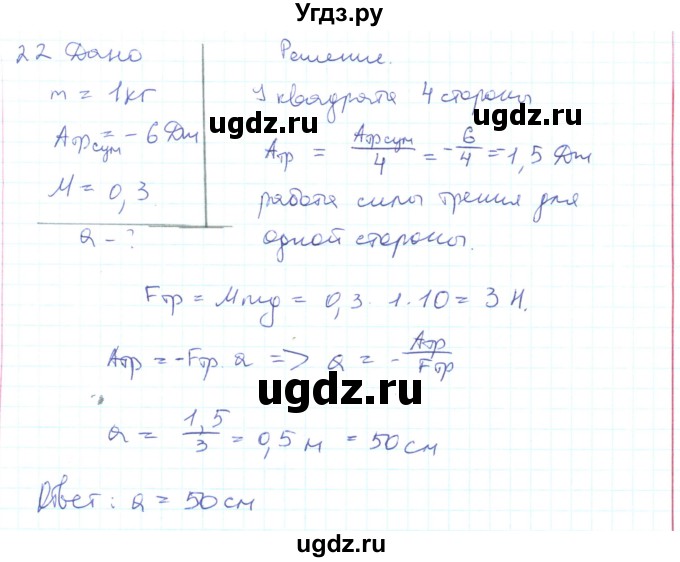 Угдз.ру
22 Дано
m = 1кг
Aтр сум = - 6 Дж
M = 0,3
a - ?
Решение.
У квадрата 4 стороны
ugdz.ru
ugdz.ru
Aтр = Aтр сум/4 = - 6/4 = -1,5 Дж
работа силы трения для
одной стороны.
Fтр = Mmg = 0,3 · 1 · 10 = 3 Н.
Aтр = -Fтр · a => a = - Aтр/Fтр
ugdz.ru
a = 1,5/3 = 0,5 м = 50 см
Ответ: a = 50 см
ugdz.ru